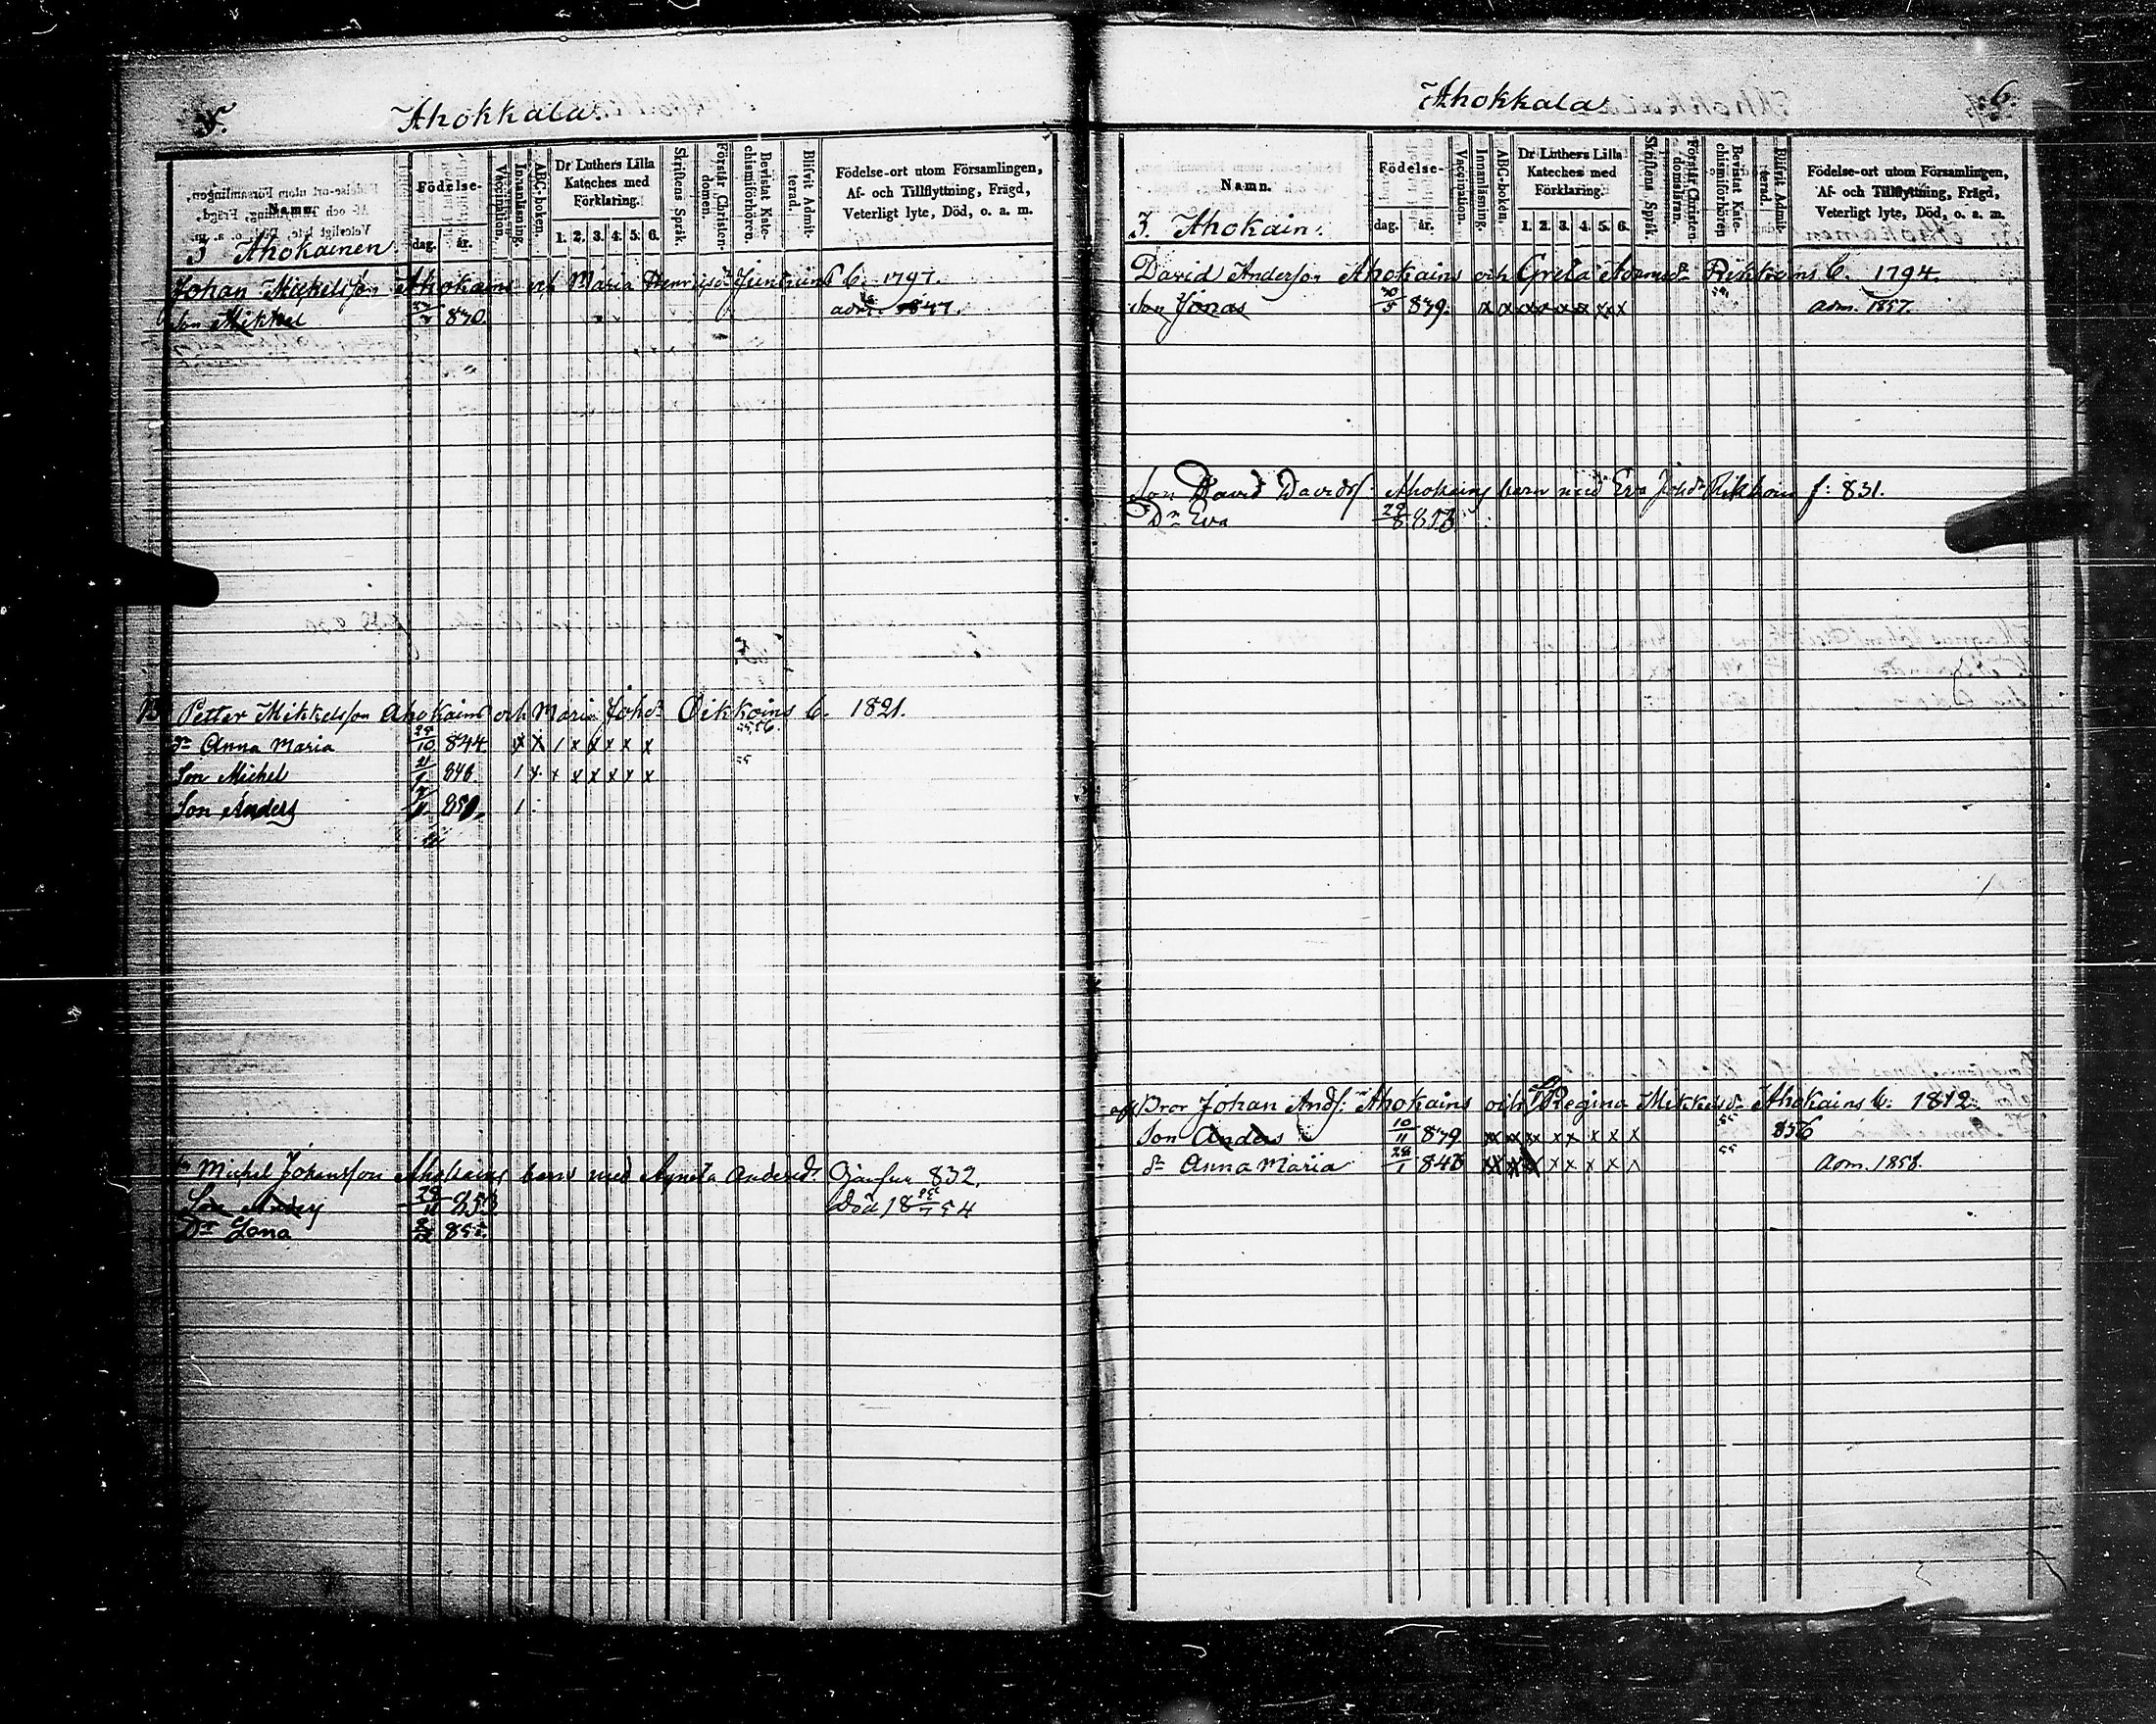 5.
Ahokkala.
Namn.
Födelse-
dag. år.
Vaccination.
Innanläsning.
ABC-boken.
Dr Luthers Lilla Kateches med Förklaring.
1. 2. 3. 4. 5. 6.
Skriftens Språk.
Förstår Christendomen.
Bevistat Katechismiförhören.
Blifvit Admitterad.
Födelse-ort utom Församlingen,
Af- och Tillflyttning, Frägd,
Veterligt lyte, Död, o. a. m.
3 Ahokainen
Johan Mickelsson Ahokains och Maria 1797.
Son Mikkel
Petter Mikkelsson Ahokains och Maria Johdr Oikkoins b. 1821.
dr Anna Maria 29/10 844. x x / x x x x x
Son Michel 846. 1 x x x x x x x
Son Anders 1
Michel Johansson Ahokains barn med Agneta Andersdr 832.
29/11 853. död 54
Dr Lena 855.
6.
Ahokkala
Namn.
Födelse-
dag. år.
Vaccination.
Innanläsning.
ABC-boken.
Dr Luthers Lilla Kateches med Förklaring.
1. 2. 3. 4. 5. 6.
Skriftens Språk.
Förstår Christendomsläran.
Bevistat Katechismiförhören
Blifvit Admitterad.
Födelse-ort utom Församlingen,
Af- och Tillflyttning, Frägd,
Veterligt lyte, Död, o. a. m.
3. Ahokain.
David Andersson Ahokains och Greta b. 1794.
Son Jonas 839. x x x x x x x x adm. 1857.
Son David Davidss. Ahokains barn med Eva Johdr f: 831.
Dr Eva 29/8 856
Bror Johan Ands. Ahokains och Regina Mikkelsdr Ahokains b. 1812.
Son Anders 10/11 839 x x x x x x x x 856
dr Anna Maria 28/1 843 x x x x x x x adm. 1858.